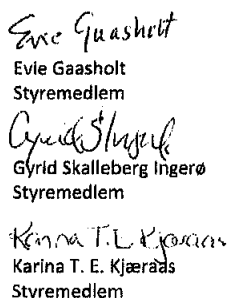 Evie Gaasholt
Evie Gaasholt
Styremedlem
Gyrid S Inger
Gyrid Skalleberg Ingerø
Styremedlem
Karina T. E. Kjæraas
Karina T. E. Kjæraas
Styremedlem